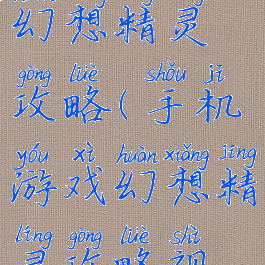 幻想精灵
gōng lüè shǒu jī
攻略(手机
yóu xì huàn xiǎng jīng
游戏幻想精
líng gōng lüè shì
灵攻略视